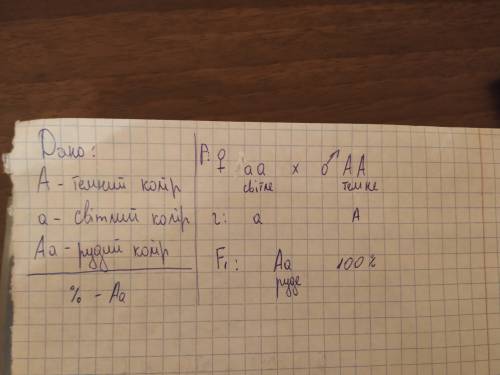 Дано:
А - темний колір
а - світлий колір
Аа - рудий колір
% - Аа
P: ♀ аа х ♂ АА
світле темне
г: а А
F₁: Аа 100%
руде